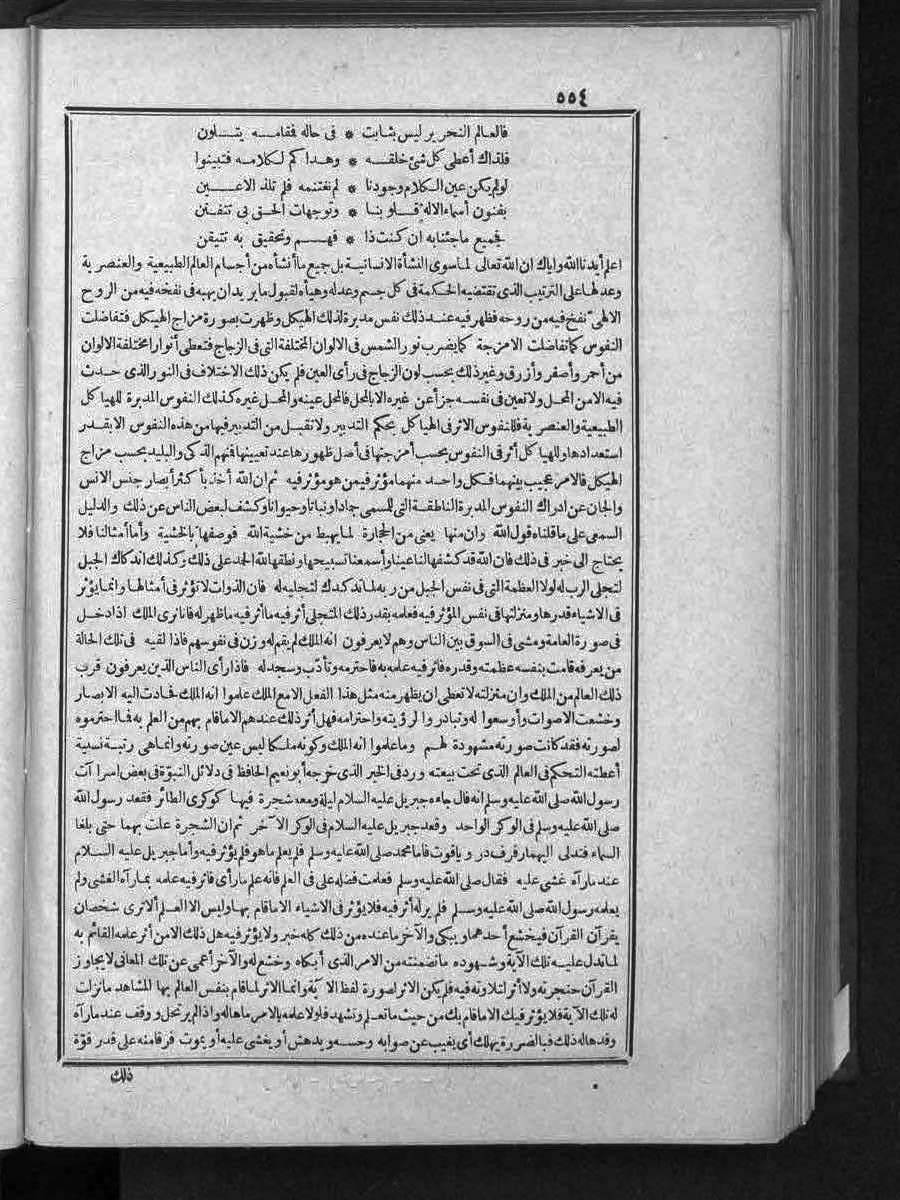 ٥٥٤
فالعالم النحرير ليس بثابت * فى حاله فقامه يتلون
فلذاك أعطى كل شئ خلقه * وهدا كم لكلامه فتبينوا
لولم يكن عين الكلام وجودنا * لم نغتنمه فلم تلذ الاعين
بفنون أسماء الاله قلوبنا * وتوجهات الحق بى تتفنن
فجميع ما جئنا به ان كنت ذا * فهم وتحقيق به تتيقن
اعلم أيدنا الله واياك ان الله تعالى لما سوى النشأة الانسانية بل جيع ما أنشأه من أجسام العالم الطبيعية والعنصرية
وعدلها على الترتيب الذى تقتضيه الحكمة فى كل جسم وعدله وهيأه لقبول ما يريد ان يهبه فى نفخه فيه من الروح
الالهى نفخ فيه من روحه فظهر فيه عند ذلك نفس مدبرة لذلك الهيكل وظهرت بصورة مزاج الهيكل فتفاضلت
النفوس كما تفاضلت الامزجة كما يضرب نور الشمس فى الالوان المختلفة التى فى الزجاج فتعطى أنوارا مختلفة الالوان
من أحمر وأصفر وأزرق وغير ذلك بحسب لون الزجاج فى رأى العين فلم يكن ذلك الاختلاف فى النور الذى حدث
فيه الامن المحل ولا تعين فى نفسه جزأ عن غيره الا بالمحل فالمحل عينه والمحل غيره كذلك النفوس المدبرة للهياكل
الطبيعية والعنصرية فللنفوس الاثر فى الهياكل بحكم التدبير ولا تقبل من التدبير فيها من هذه النفوس الا بقدر
استعدادها وللهياكل أثر فى النفوس بحسب أمزجتها فى أصل ظهورها عند تعيينها فنهم الذكى والبليد بحسب مزاج
الهيكل فالامر عجيب بينهما فكل واحد منهما مؤثر فيمن هو مؤثر فيه ثم ان الله أخذ بأكثر أبصار جنس الانس
والجان عن ادراك النفوس المدبرة الناطقة التى للمسمى جمادا ونباتا وحيوانا وكشف لبعض الناس عن ذلك والدليل
السمعى على ما قلناه قول الله وان منها يعنى من الحجارة لما يهبط من خشية الله فوصفها بالخشية وأما أمثالنا فلا
يحتاج الى خبر فى ذلك فان الله قد كشفها لنا عينا وأسمعنا تسبيحها ونطقها لله الحمد على ذلك وكذلك اندكاك الجبل
لتجلى الرب له لولا العظمة التى فى نفس الجبل من ربه لما تدكدك لتجليه له فان الذوات لا تؤثر فى أمثالها وانما يؤثر
فى الاشياء قدرها ومنزلتها فى نفس المؤثر فيه فعامه بقدر ذلك المتجلى أثر فيه ما أثر فيه ما ظهر له فانا نرى الملك اذا دخل
فى صورة العامة ومشى فى السوق بين الناس وهم لا يعرفون انه الملك لم يقم له وزن فى نفوسهم فاذا لقيه فى تلك الحالة
من يعرفه قامت بنفسه عظمته وقدره فاثر فيه علمه به فاحترمه وتأدب وسجد له فاذا رأى الناس الذين يعرفون قرب
ذلك العالم من الملك وان منزلته لا تعطى ان يظهر منه مثل هذا الفعل الا مع الملك علموا انه الملك فحادت اليه الابصار
وخشعت الاصوات وأوسعوا له وتبادروا لرؤيته واحترامه فهل أثر ذلك عندهم الا ما قام بهم من العلم به فما احترموه
لصورته فقد كانت صورته مشهودة لهم وما علموا انه الملك وكونه ملكا ليس عين صورته وانما هى رتبة نسبية
أعطته التحكم فى العالم الذى تحت بيعته ورد فى الخبر الذى خرجه أبو نعيم الحافظ فى دلائل النبوة فى بعض اسراآت
رسول الله صلى الله عليه وسلم انه قال جاءه جبريل عليه السلام ليلة ومعه شجرة فيها كوكرى الطائر فقعد رسول الله
صلى الله عليه وسلم فى الوكر الواحد وقعد جبريل عليه السلام فى الوكر الآخر ثم ان الشجرة علت بهما حتى بلغا
السماء فتدلى اليهما رفرف در وياقوت فاما محمد صلى الله عليه وسلم فلم يعلم ما هو فلم يؤثر فيه وأما جبريل عليه السلام
عند ما رآه غشى عليه فقال صلى الله عليه وسلم فعلمت فضله على فى العلم فانه علم ما رأى فاثر فيه علمه بما رآه الغشى ولم
يعلمه رسول الله صلى الله عليه وسلم فلم ير له أثر فيه فلا يؤثر فى الاشياء الا ما قام بها وليس الا العلم ألا ترى شخصان
يقرآن القرآن فيخشع أحدهما ويبكى والآخر ما عنده من ذلك كله خبر ولا يؤثر فيه هل ذلك الا من أثر علمه القائم به
لما تدل عليه تلك الآية وشهوده ما تضمنته من الامر الذى أبكاه وخشع له والآخر أعمى عن تلك المعانى لا يجاوز
القرآن حنجرته ولا أثر لتلاوته فيه فلم يكن الاثر لصورة لفظ الآية وانما الاثر لما قام بنفس العالم بها المشاهد ما نزلت
له تلك الآية فلا يؤثر فيك الا ما قام بك من حيث ما تعلم وتشهد فلولا علمه بالامر ما هاله واذا لم يرتحل ووقف عند ما رآه
وقد هاله ذلك فبالضرورة يهلك أى يغيب عن صوابه وحسه ويدهش أو يغشى عليه أو يموت فرقا منه على قدر قوة
ذلك